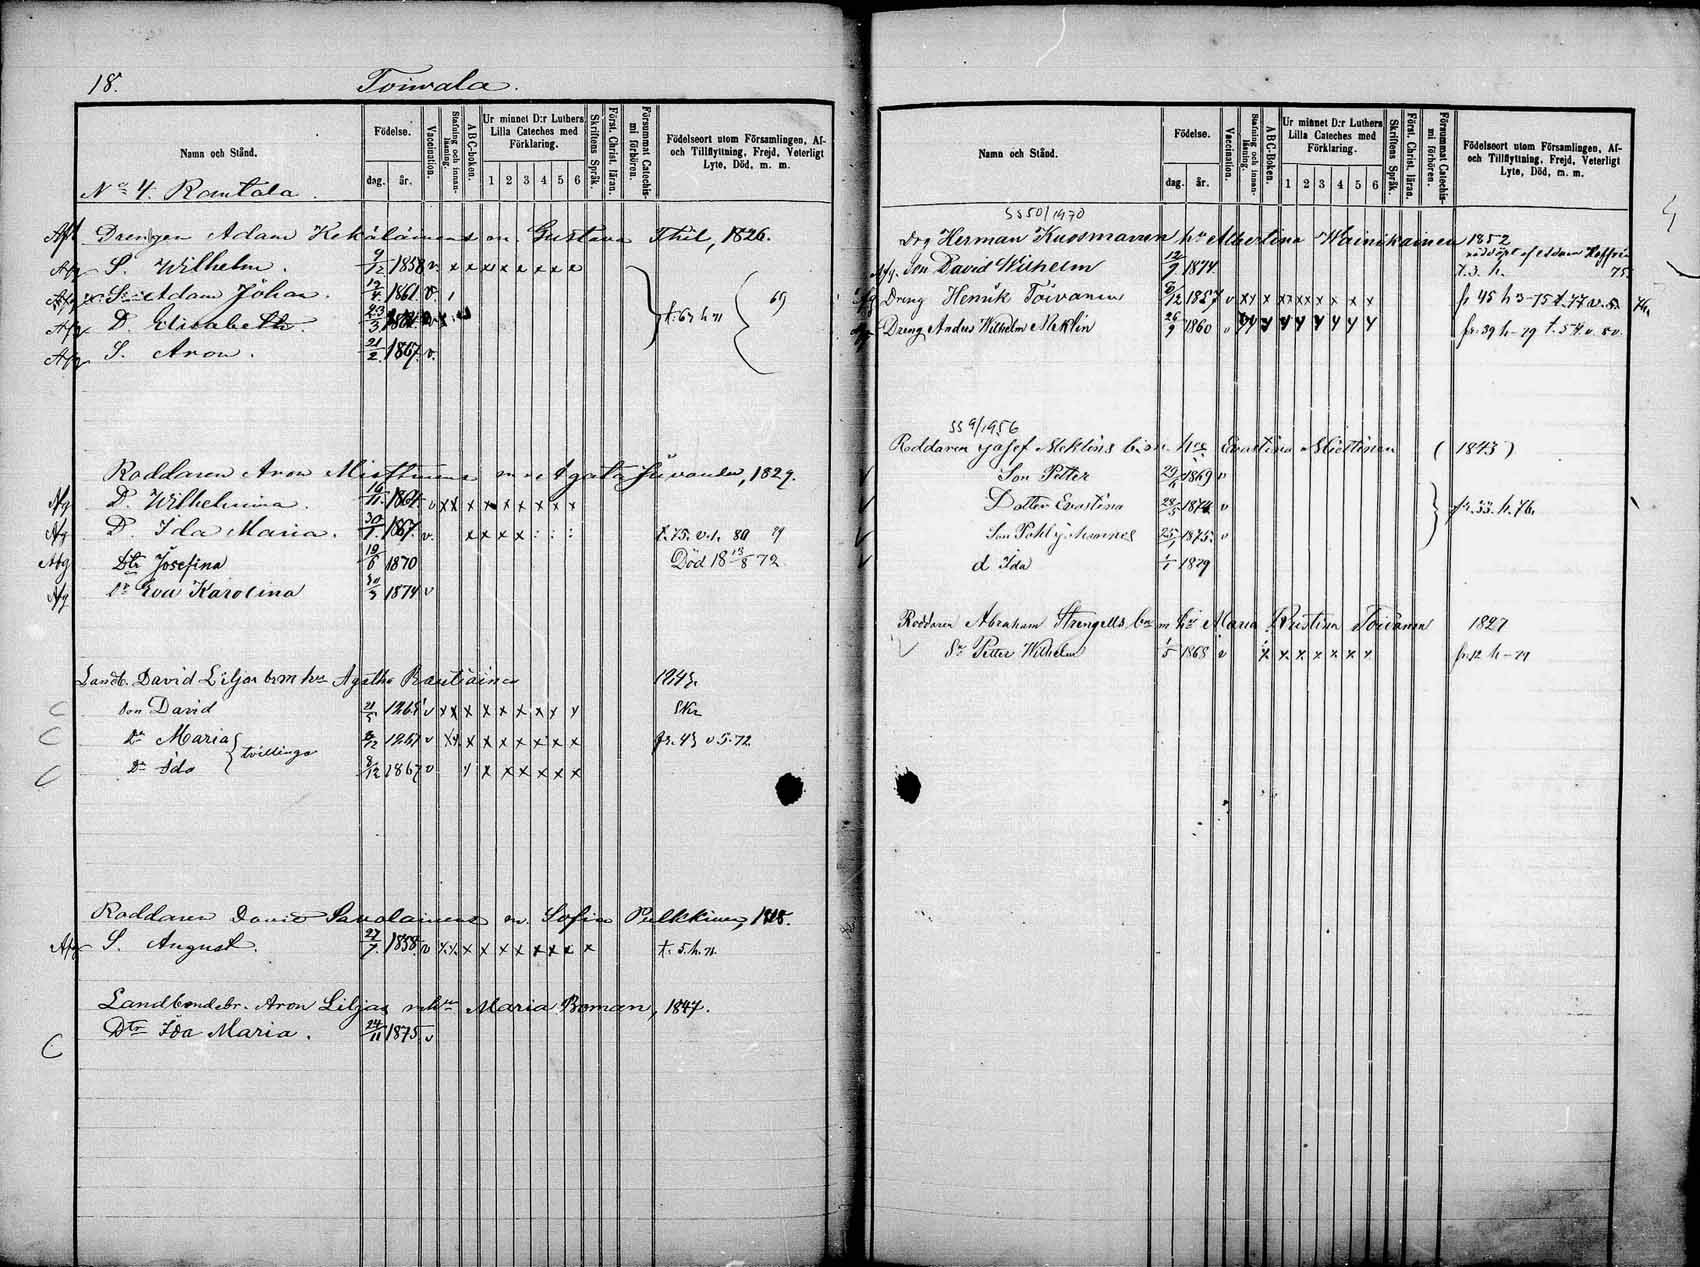 18.
Toiwala.
Namn och Stånd.
Födelse.
dag.
år.
Vaccination.
Stafning och innanläsning.
ABC-boken.
Ur minnet D:r Luthers Lilla Cateches med Förklaring.
1 2 3 4 5 6
Skriftens Språk.
Först. Christ. läran.
Försummat Catechismi förhören.
Födelseort utom Församlingen, Af- och Tillflyttning, Frejd, Veterligt Lyte, Död, m. m.
No 4. Rantala.
Drengen Adam Kekäläinens m. Gustava Thil, 1826.
Afg S. Wilhelm. 9/12 1858 v. x x x x x x x x
S. Adam Johan. 12/4 1861. v.
D. Elisabeth. 23/3 t. 67 h 71 69
Afg S. Aron. 21/2 1867. v.
Roddaren Aron Miettinens m. Agata 1829.
Afg D. Wilhelmina. 16/11 1864. v x x x x x x x x x
Afg D. Ida Maria. 30/7 1867. v. x x x x : : : t. 75. v. 1. 80
Afg Dtr Josefina 19/6 1870 Död 18 13/8 72.
Afg Dr Eva Karolina 30/3 1874 v
Landb. David Liljas br m hru Agatha Rautiainen 1843.
C Son David 21/5 1865 v x x x x x x x x x
C Dr Maria 8/12 1867 v x x x x x x x x x fr. 43 v 5. 72
tvillingar
C Dr Ida 8/12 1867 v x x x x x x x
Roddaren David Savolainens m. Sofia Pulkkinen, 1825.
Afg S. August. 27/7 1858. v x x x x x x x x x x t. 5. h. 71.
Landbondebr. Aron Liljas m hru Maria Boman, 1847.
C Dtr Ida Maria. 24/11 1875 v
Namn och Stånd.
Födelse.
dag.
år.
Vaccination.
Stafning och innanläsning.
ABC-Boken.
Ur minnet D:r Luthers Lilla Cateches med Förklaring.
1 2 3 4 5 6
Skriftens Språk.
Först. Christ. läran.
Försummat Catechismi förhören.
Födelseort utom Församlingen, Af- och Tillflyttning, Frejd, Veterligt Lyte, Död, m. m.
SS 50/1970
Drg Herman Kuosmanen hu Albertina Wainikainen 1852
Afg. Son David Wilhelm 12/9 1874. t. 3. h. 75.
Afg Dreng Henrik Toivanen 6/12 1857 v x x x x x x x x x x fr 45 h 3-75 t. 77 v. 5. 76.
Dreng Anders Wilhelm Meklin 26/9 1860 v x x x x x x x x x fr. 39 h - 79 t. 54. v. 80.
SS 9/1956
Roddaren Josef Meklins br m hru Evastina Miettinen (1843)
Son Petter 29/6 1869 v
Dotter Evastina 28/5 1874 v fr. 33. h. 76.
Son Pohl Johannes 25/1 1875. v
d Ida 1/1 1879
Roddaren Abraham Strengells br m hu Maria Kristina Toivanen 1827
Sn Petter Wilhelm 1/5 1868 v x x x x x x x fr. 12 h - 79